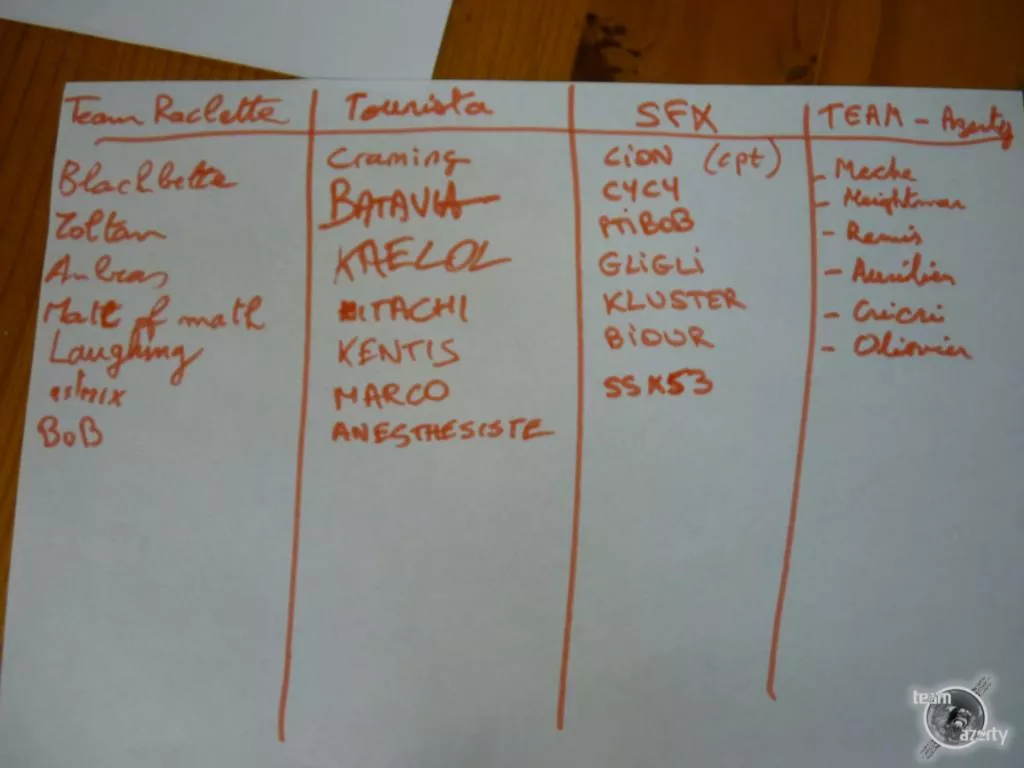 Team Raclette
Blackbette
Zoltan
Ambras
Math of math
Laughing
BoB
Tourista
Craming
BATAVIA
KAELOL
ITACHI
KENTIS
MARCO
ANESTHESISTE
SFX
CiON (cpt)
CYCY
PTiBOB
GLiGLi
KLUSTER
BiOUR
SSK53
TEAM - Azerty
- Meche
- Neightman
- Remis
- Aurélien
- Cricri
- Olivier
team
azerty